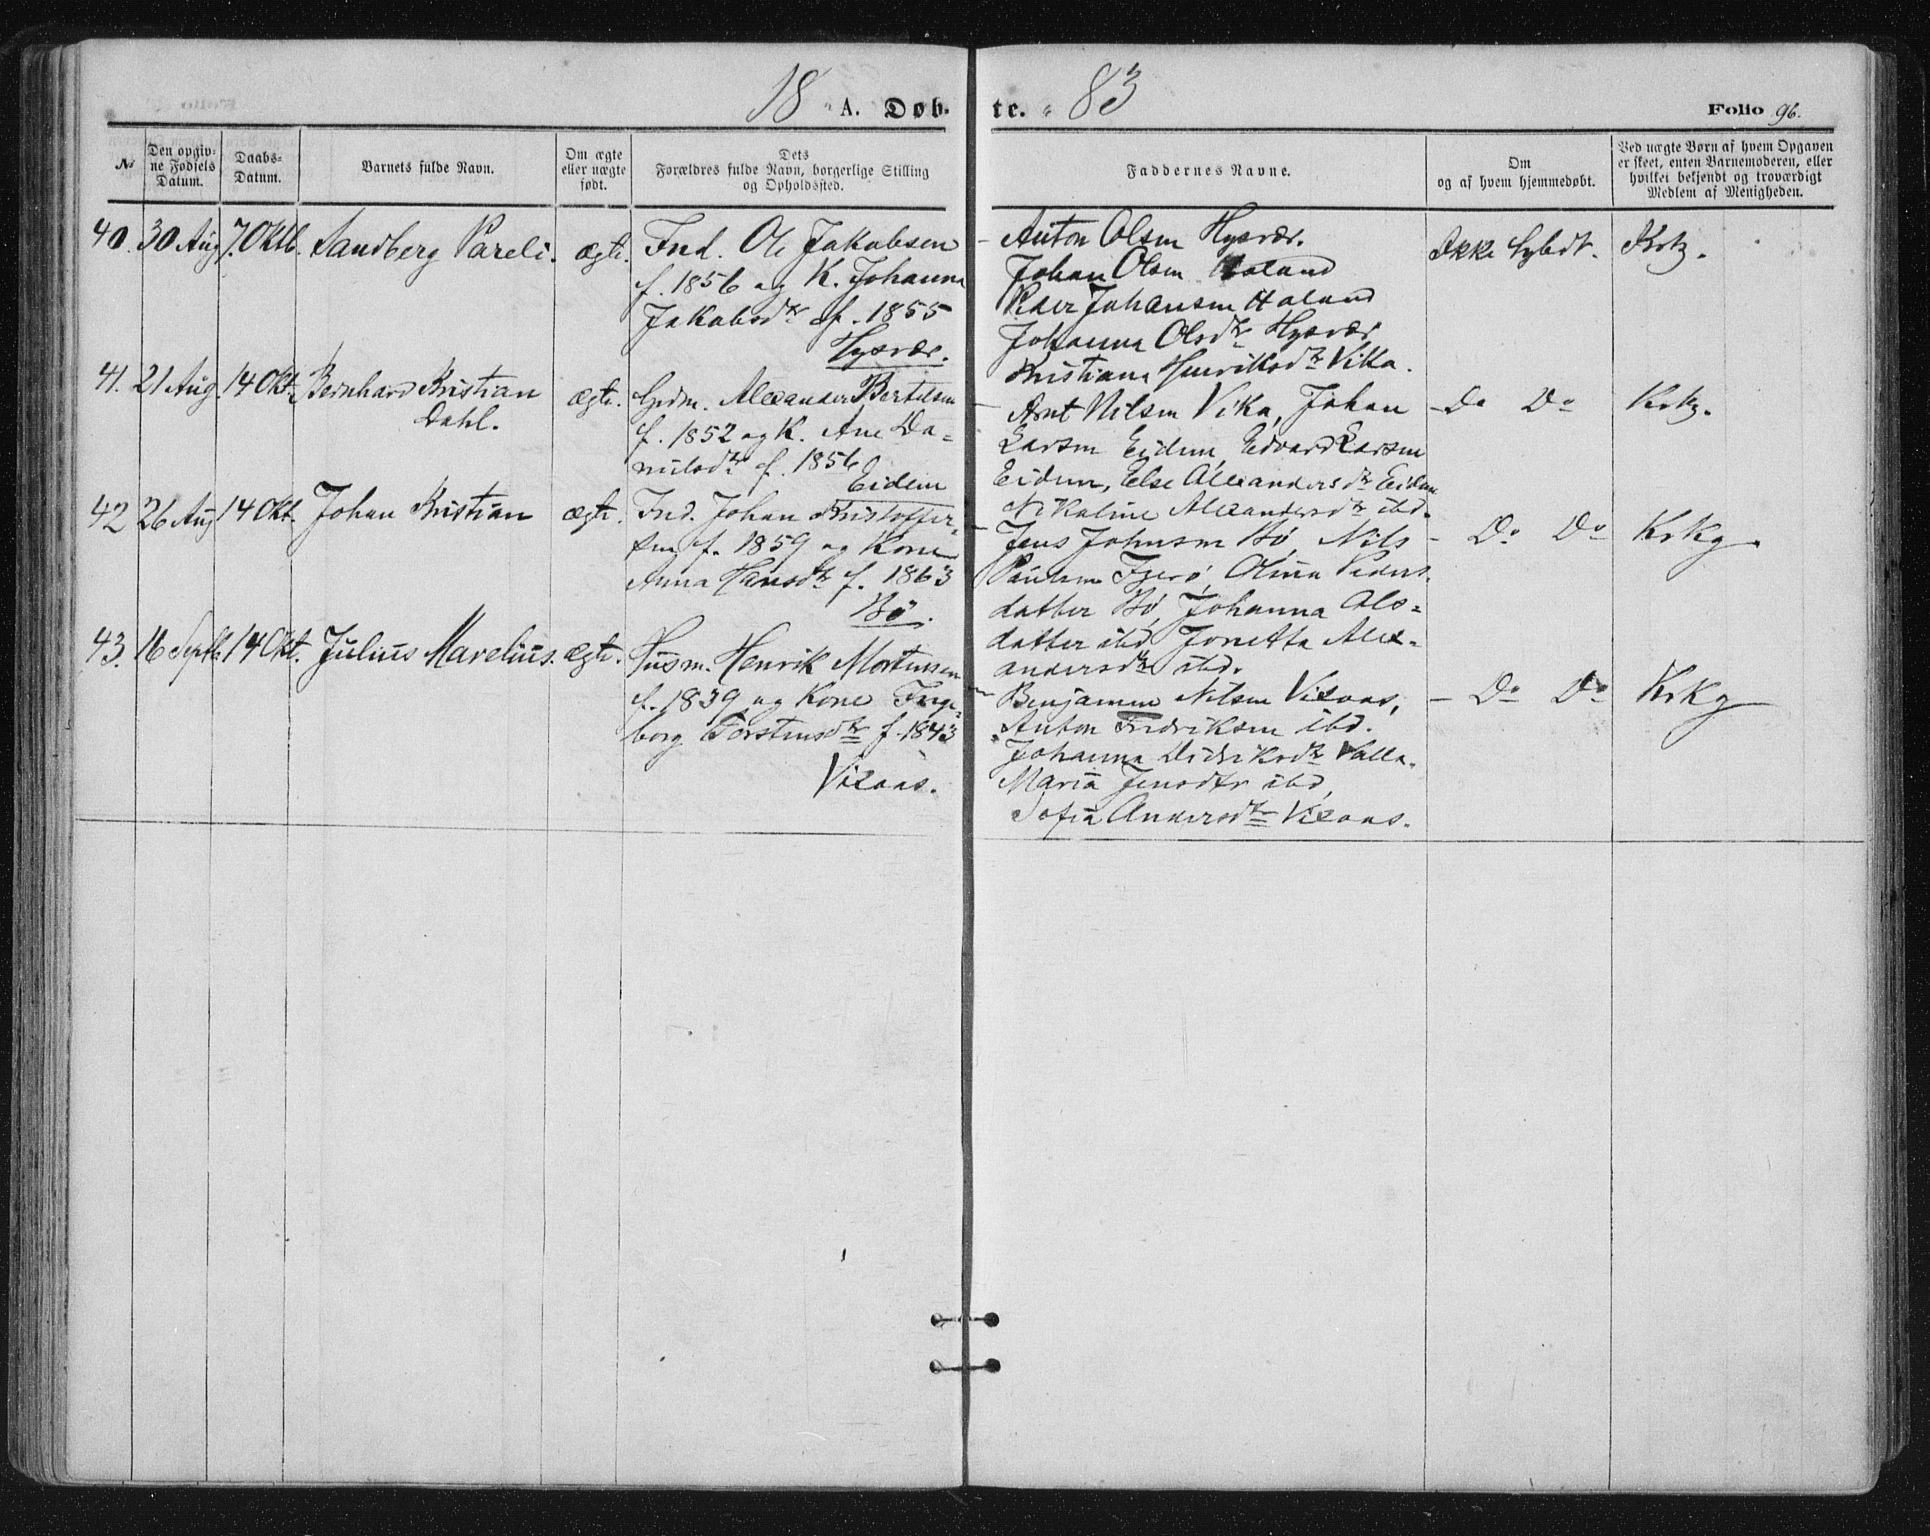 18 A. Døb- te. 83
Folio 96.
№
Den opgiv-
ne Fødsels
Datum.
Daabs-
Datum.
Barnets fulde Navn.
Om ægte
eller uægte
født.
Dets
Forældres fulde Navn, borgerlige Stilling
og Opholdssted.
Faddernes Navne.
Om
og af hvem hjemmedøbt.
Ved uægte Børn af hvem Opgaven
er skeet, enten Barnemoderen, eller
hvilket bekjendt og troværdigt
Medlem af Menigheden.
40. 30 Aug 7. Oktb. Sandberg Pareli. ægte.
Ind. Ole Jakobsen
f. 1856 og K. Johanna
Jakobsdtr f. 1855
Hysvær.
Anton Olsen Hysvær.
Johan Olsen Haland
Peder Johansen Haland
Johanna Olsdtr Hysvær
Kristiana Henriksdtr Vika.
Ikke hjdt. Krkg.
41. 21 Aug. 14 Okt. Bernhard Kristian
Dahl.
ægte.
Grdm. Alexander Bertelsen
f. 1852 og K. Ane Da-
nielsdtr f. 1856
Eidem
Arnt Nilsen Vika, Johan
Larsen Eidem, Edvard Larsen
Eidem, Else Alexandersdtr Eidem
Nikoline Alexandersdtr ibd.
- Do Do Krkg.
42 26 Aug 14 Okt. Johan Kristian ægte.
Ind. Johan Kristoffer-
sen f. 1859 og Kone
Anna Hansdtr f. 1863
Bø.
Jens Johnsen Bø, Nils
Paulsen Igerø, Olina Peders-
datter Bø, Johanna Ols-
datter ibd, Jonetta Alex-
andersdtr ibd.
- Do Do Krkg.
43. 16 Septb. 14 Okt. Julius Marelius. ægte.
Husm. Henrik Mortensen
f. 1839 og Kone Inge-
borg Torstensdtr f. 1843
Visaas.
Benjamin Nilsen Visaas,
Anton Fredriksen ibd.
Johanna Didriksdtr Valla.
Maria Jensdtr ibd,
Sofia Andersdtr Visaas.
- Do Do Krkg